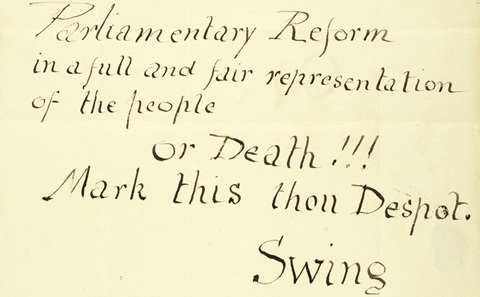 Parliamentary Reform
in a full and fair representation
of the people
or Death !!!
Mark this thou Despot.
Swing